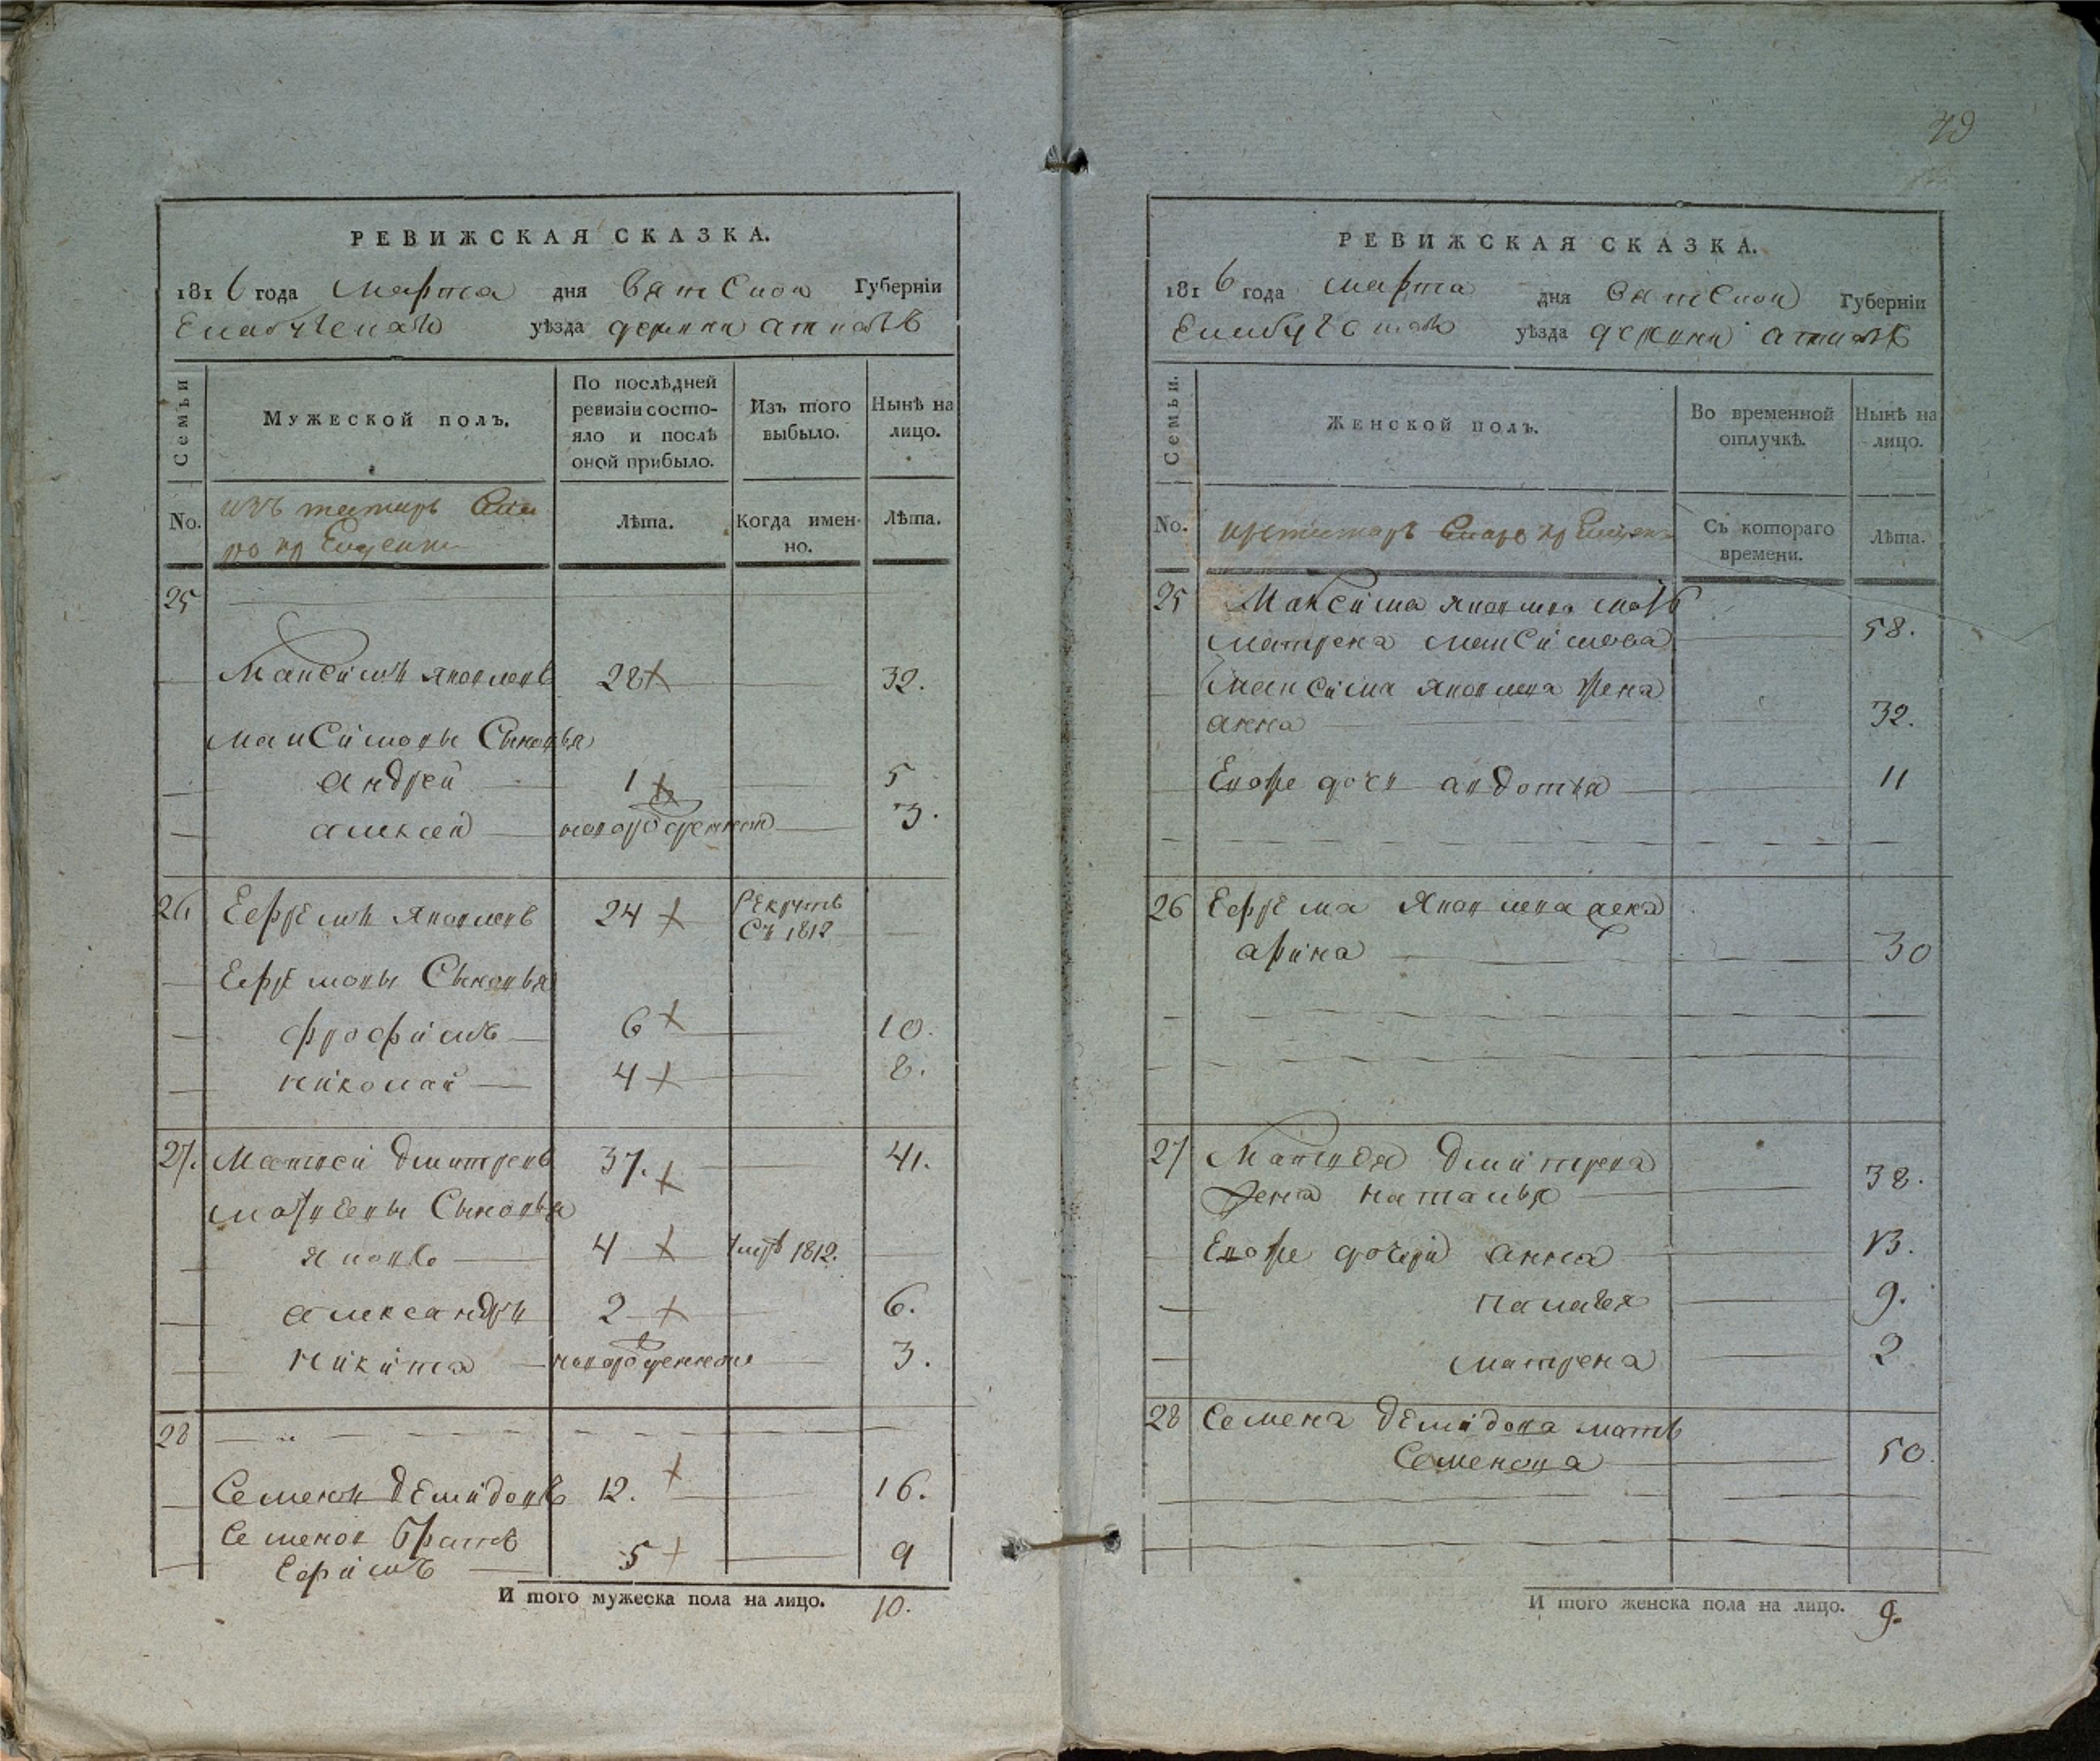 РЕВИЖСКАЯ СКАЗКА.
1816 года Марта дня Вятской Губерніи
Елабужскаго уѣзда деревни
Семьи
Мужеской полъ.
По послѣдней ревизіи состо-
яло и послѣ
оной прибыло.
Изъ того
выбыло.
Нынѣ на
лицо.
No.
изъ татаръ Ста
ро кр ещенн
Лѣта.
Когда имен-
но.
Лѣта.
25
Максимъ Яковлевъ 28 32.
Максимовы Сыновья
андрей 1 5
алексей новорожденной 3.
26 Ефремъ Яковлевъ 24 Рекрутъ
Съ 1812
Ефремовы Сыновья
фрофимъ 6 10.
николай 4 8.
27. Матвей Дмитревъ 37. 41.
матвеевы Сыновья
яковъ 4 1812.
александръ 2 6.
никита новорожденной 3.
28
Семенъ Демидовъ 12. 16.
Семенов братъ
Ефимъ 5 9
И того мужеска пола на лицо. 10.
РЕВИЖСКАЯ СКАЗКА.
1816 года марта дня Вятской Губерніи
Елабужскаго уѣзда деревни
Семьи.
Женской полъ.
Во временной
отлучкѣ.
Нынѣ на
лицо.
No.
Старо кр ещен
Съ котораго
времени.
Лѣта.
25 Максима яковлева мать
матрена максимова 58.
максима яковлева жена
анна 32.
Евоже дочь авдотья 11
26 Ефрема Яковлева жена
арина 30
27 Матвея Дмитрева
жена наталья 38.
Евоже дочери анна 13.
палагея 9.
матрена 2
28 Семена Демидова мать
Семенова 50.
И того женска пола на лицо. 9.